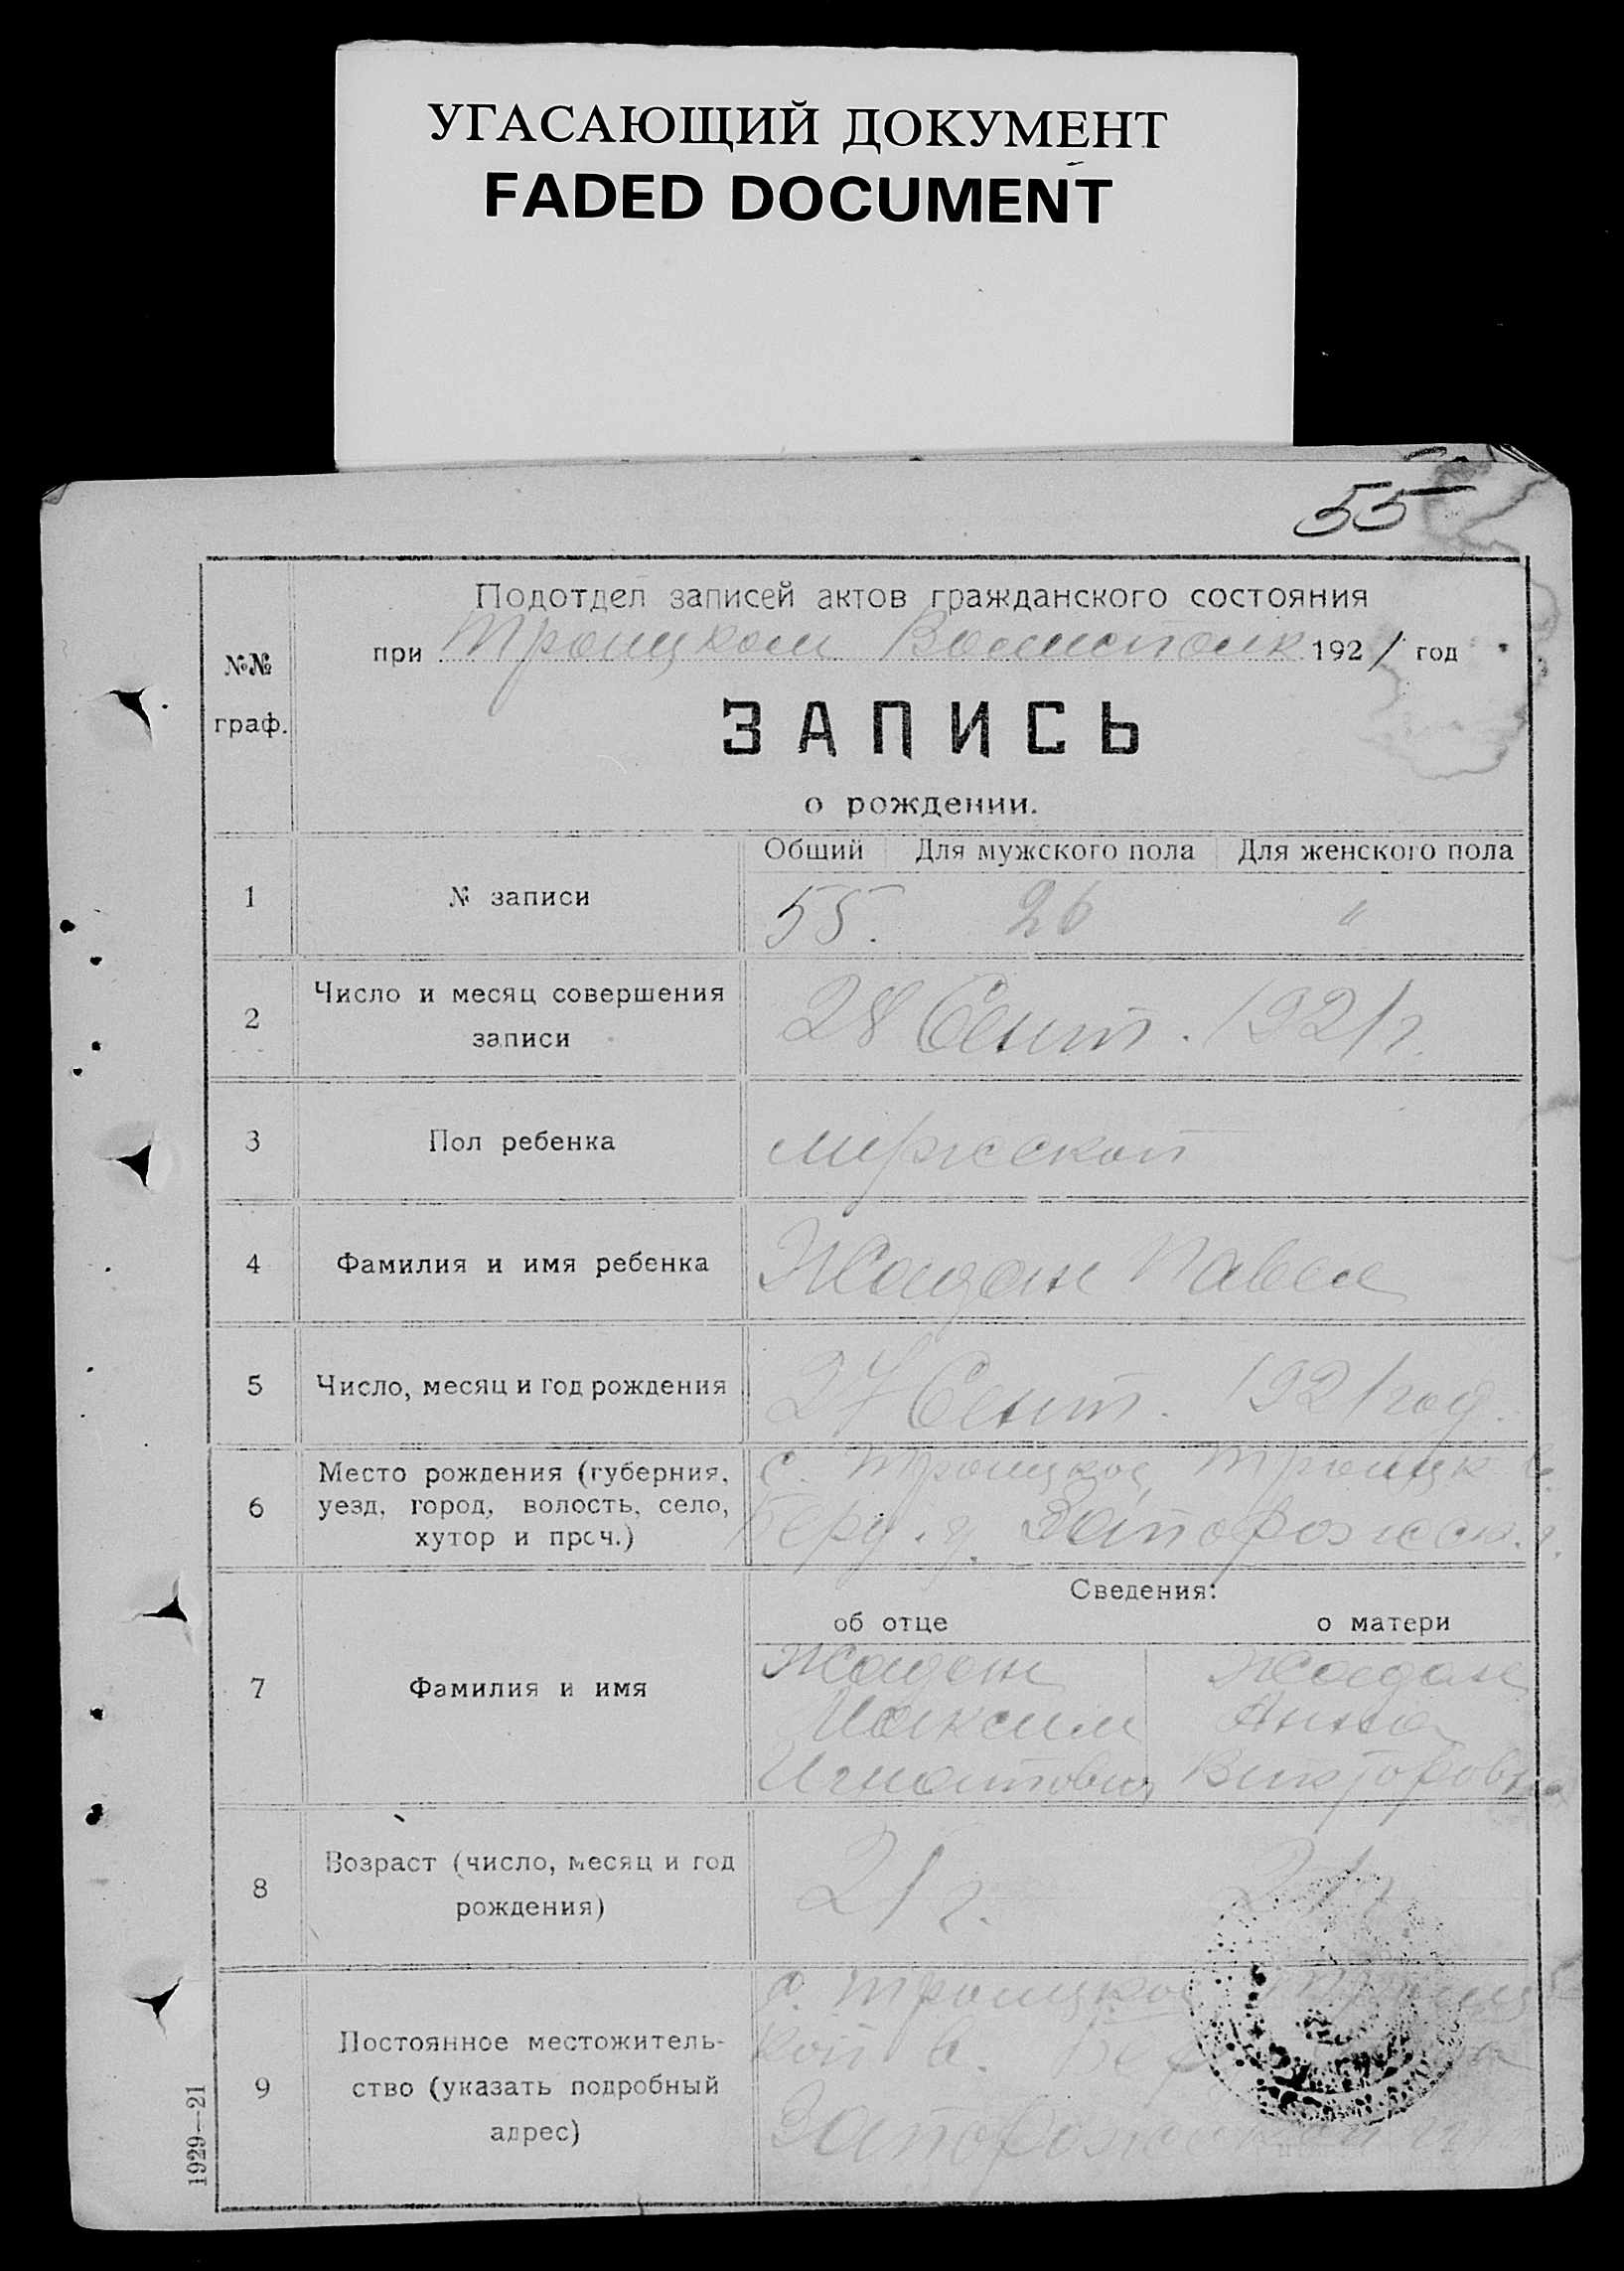 УГАСАЮЩИЙ ДОКУМЕНТ
FADED DOCUMENT
55
Подотдел записей актов гражданского состояния
при Троицком Волисполк 1921 год
№№
граф.
ЗАПИСЬ
о рождении.
Общий Для мужского пола Для женского пола
1 № записи 55. 26 "
2 Число и месяц совершения
записи
28 Сент. 1921 г.
3 Пол ребенка мужской
4 Фамилия и имя ребенка Жадан Павел
5 Число, месяц и год рождения 27 Сент. 1921 год.
6 Место рождения (губерния,
уезд, город, волость, село,
хутор и проч.)
с. Троицкое, Троицк в.
Берд. у. Запорожск. г.
Сведения:
об отце о матери
7 Фамилия и имя
Жадан Жадан
Максим Анна
Игнатович Викторовна
8 Возраст (число, месяц и год
рождения)
21 г. 21 г
9 Постоянное местожитель-
ство (указать подробный
адрес)
с. Троицкое Троиц
кой в.
Запорожской
1929—21